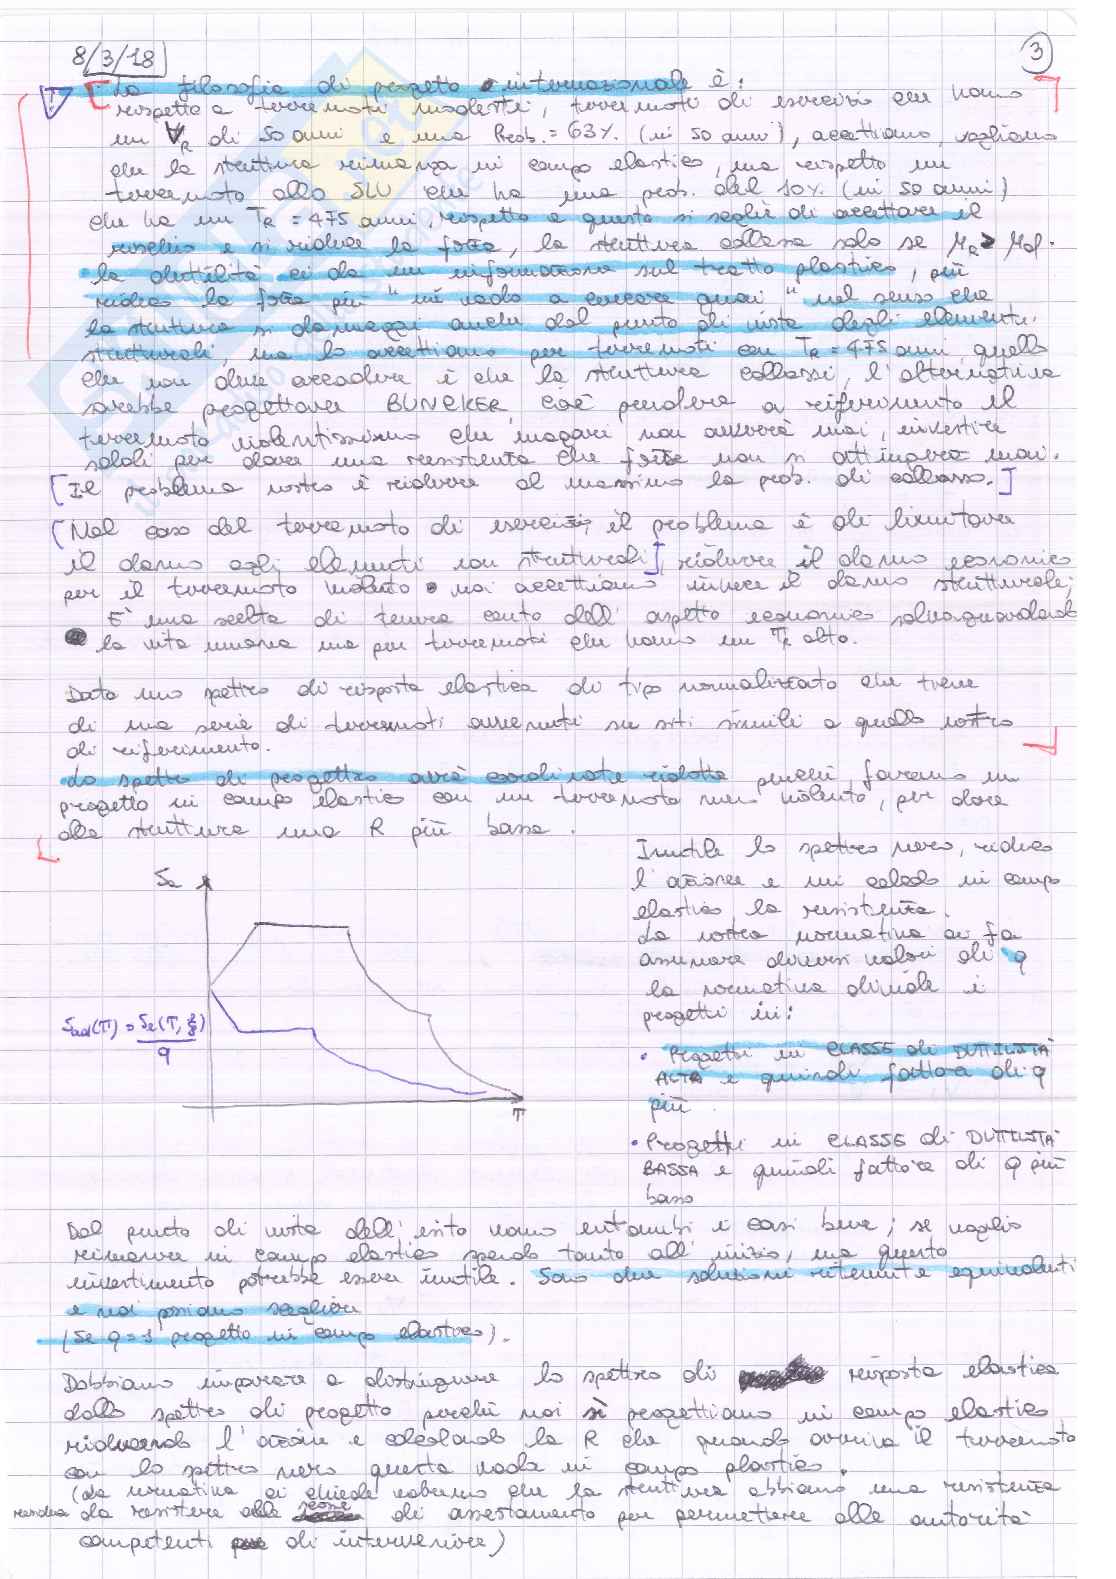 8/3/18
3
La filosofia di progetto internazionale è:
rispetto a terremoti modesti, terremoti di esercizio che hanno
un VR di 50 anni e una Prob. = 63%. (in 50 anni), accettiamo, vogliamo
che la struttura rimanga in campo elastico, ma rispetto un
terremoto allo SLU che ha una prob. del 10%. (in 50 anni)
che ha un TR = 475 anni, rispetto a questo si sceglie di accettare il
rischio e si riduce la forza, la struttura collassa solo se μR > μd.
la duttilità ci da un informazione sul tratto plastico, più
riduco la forza più "mi vado a cercare guai" nel senso che
la struttura si danneggi anche dal punto di vista degli elementi
strutturali, ma lo accettiamo per terremoti con TR = 475 anni, quello
che non deve accadere è che la struttura collassi, l'alternativa
sarebbe progettare BUNCKER cioè prendere a riferimento il
terremoto violentissimo che magari non avverrà mai, investire
soldi per dare una resistenza che forse non si attingerà mai.
[Il problema nostro è ridurre al massimo la prob. di collasso.]
[Nel caso del terremoto di esercizio, il problema è di limitare
il danno agli elementi non strutturali], ridurre il danno economico
per il terremoto violento noi accettiamo invece il danno strutturale;
E' una scelta di tenere conto dell'aspetto economico salvaguardando
la vita umana ma per terremoti che hanno un TR alto.
Dato uno spettro di risposta elastica di tipo normalizzato che tiene
di una serie di terremoti avvenuti su siti simili a quello nostro
di riferimento.
Lo spettro di progetto avrà coordinate ridotte perché faremo un
progetto in campo elastico con un terremoto meno violento, per dare
alla struttura una R più bassa.
Inutile lo spettro nero, riduco
l'azione e mi calcolo in campo
elastico la resistenza.
La nostra normativa ci fa
assumere diversi valori di q
la normativa divide i
progetti in:
• Progetti in CLASSE di DUTTILITÀ
ALTA e quindi fattore di q
più
• Progetti in CLASSE di DUTTILITÀ
BASSA e quindi fattore di q più
basso
Se
T
Dal punto di vista dell'esito vanno entrambi i casi bene; se voglio
rimanere in campo elastico spendo tanto all'inizio, ma questo
investimento potrebbe essere inutile. Sono due soluzioni ritenute equivalenti
e noi possiamo scegliere
(Se q=1 progetto in campo elastico).
Dobbiamo imparare a distinguere lo spettro di risposta elastica
dallo spettro di progetto perché noi progettiamo in campo elastico
riducendo l'azione e calcolando la R che quando arriva il terremoto
con lo spettro nero questa vada in campo plastico.
(La normativa ci chiede che la struttura abbiamo una resistenza
residua da resistere alle scosse di assestamento per permettere alle autorità
competenti di intervenire)